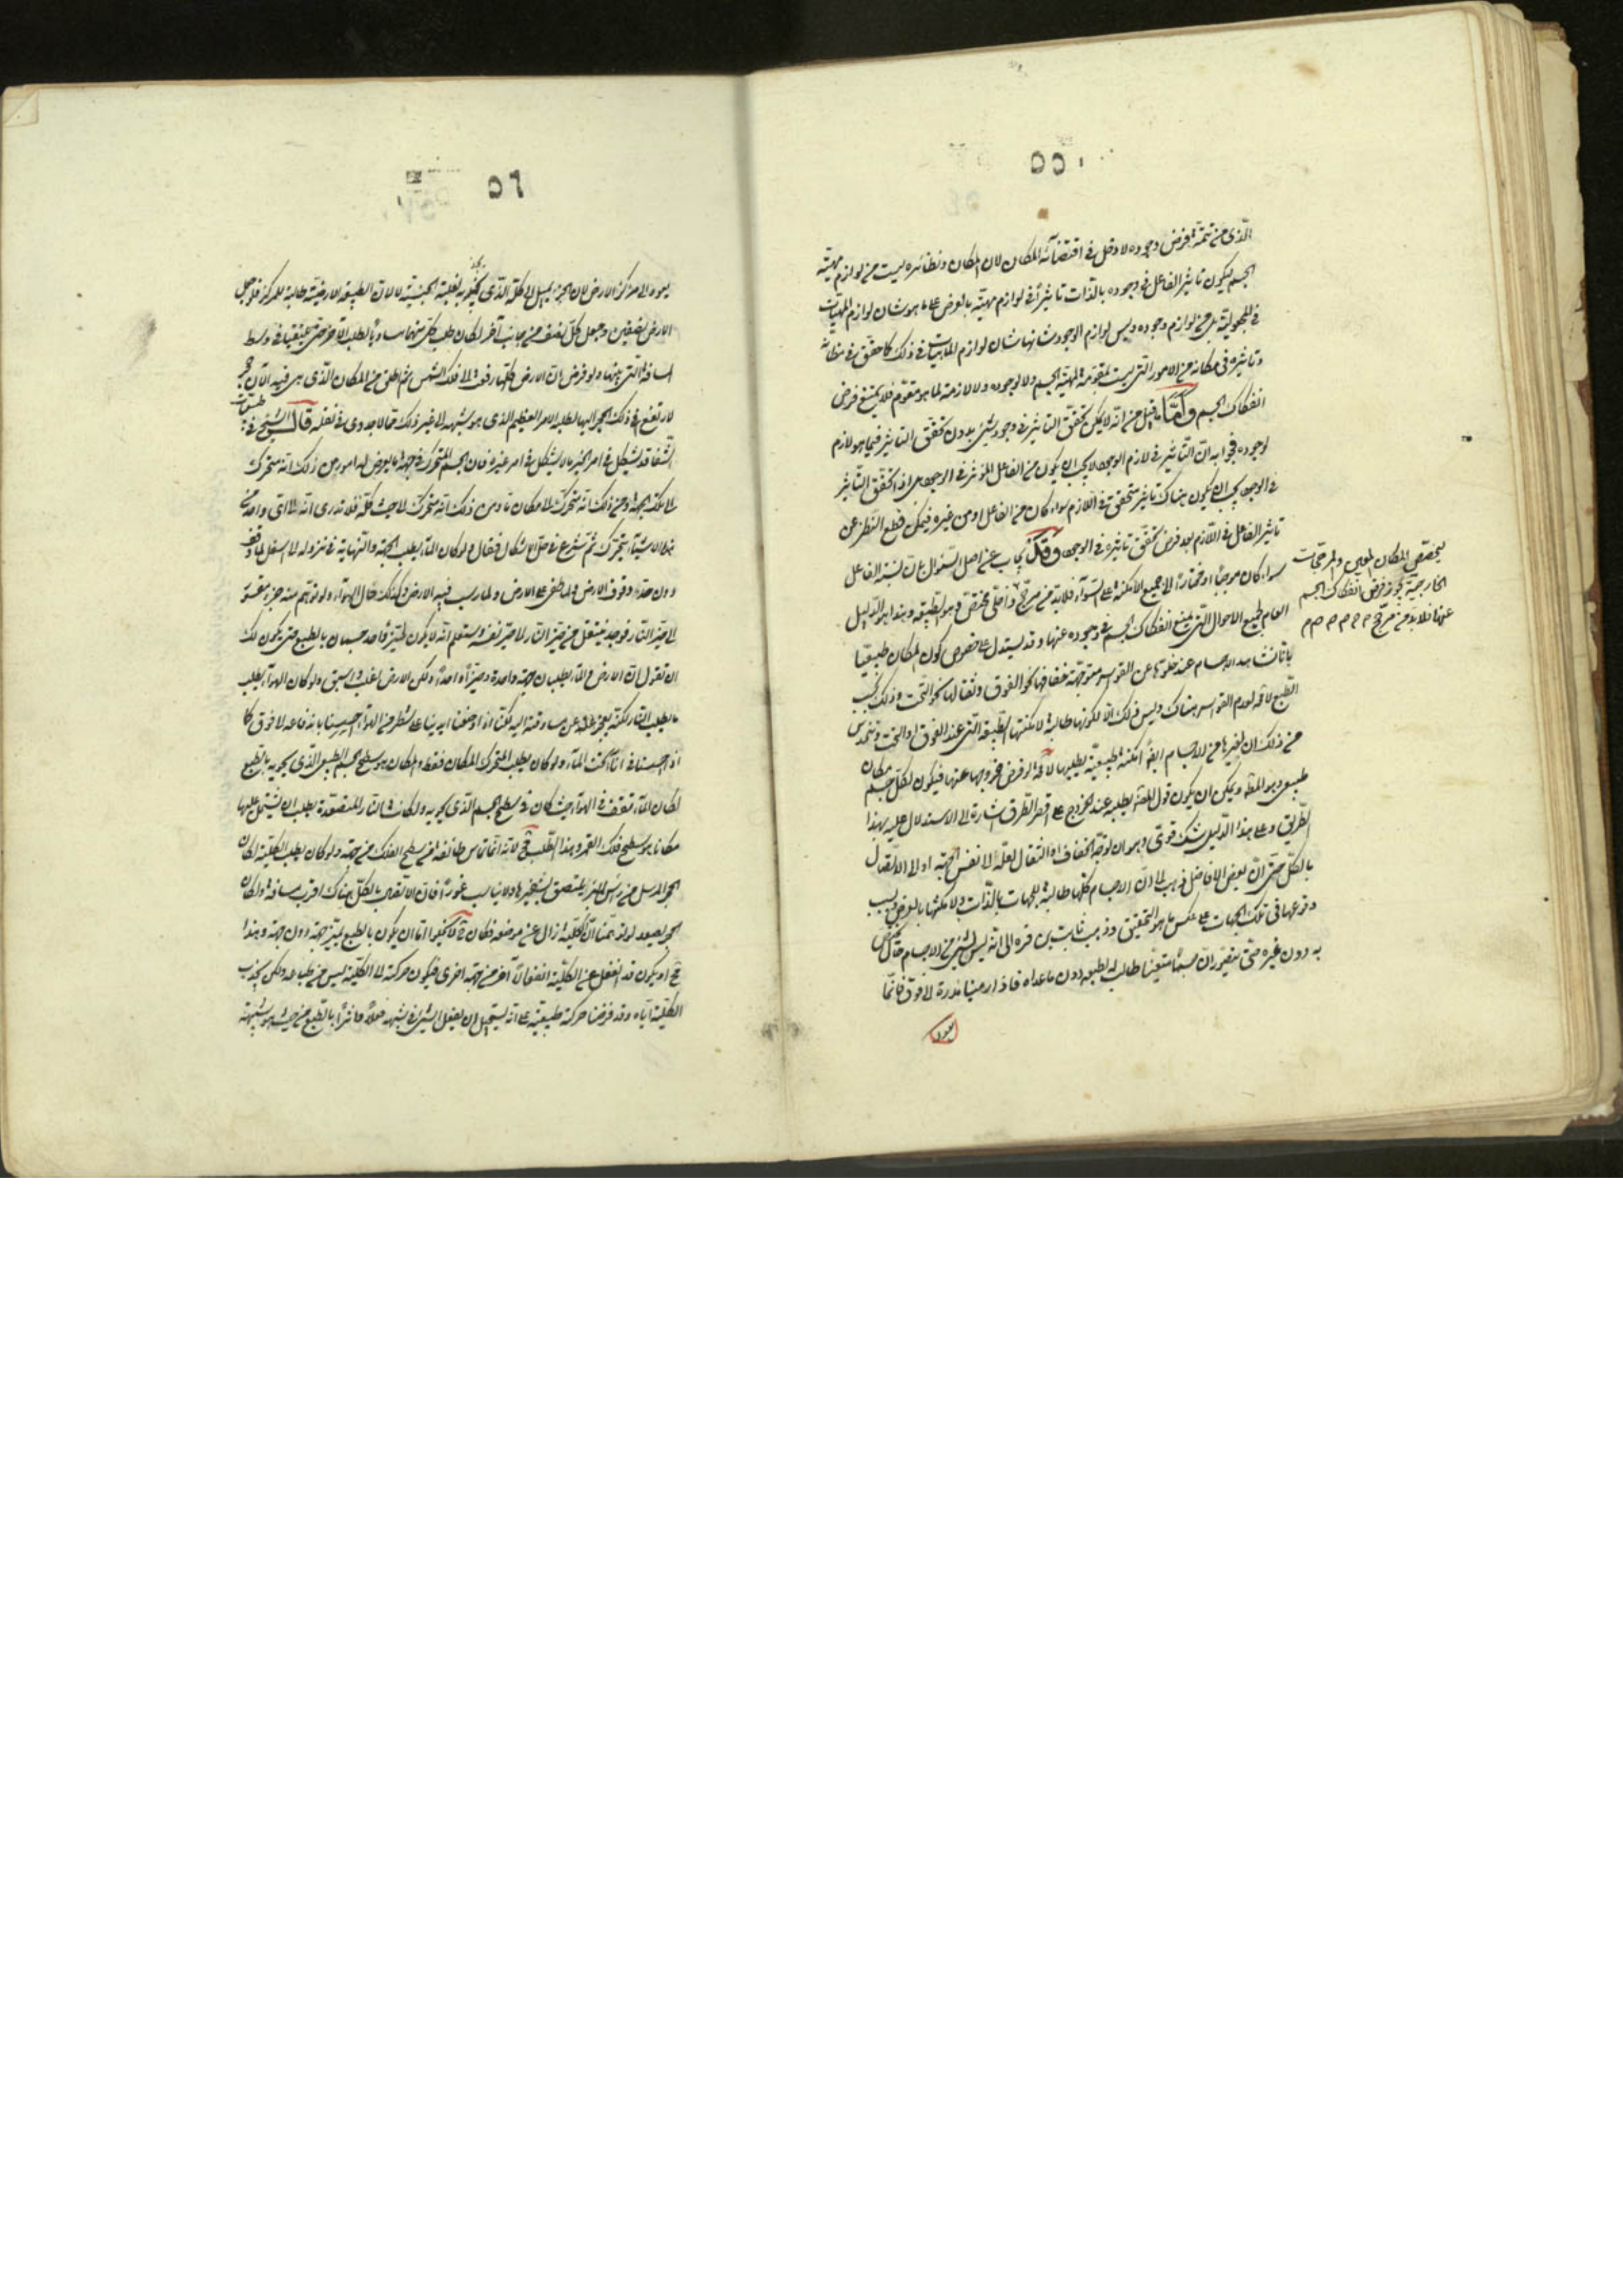 ٥٥
الذی من تتمة فرض وجوده لا دخل فی اقتضائه للمکان لان المکان ونظائره لیست من لوازم مهیّة
الجسم لیکون تاثیر الفاعل فی وجوده بالذات تاثیراً فی لوازم مهیّته بالعرض علی ما هو شان لوازم المهیات
فی المجعولیّة بل من لوازم وجوده ولیس لوازم الوجود شانها شان لوازم الماهیات فی ذلک کما حقق فی مظانّه
وتاثیره فی مکانه من الامور التی لیست مقوّمة لمهیّة الجسم ولا لوجوده ولا لازمة لما هو مقوّم فلا یمتنع فرض
انفکاک الجسم وامّا ما قیل من انّه لا یمکن تحقّق التاثیر فی وجود شیء بدون تحقّق التاثیر فیما هو لازم
لوجوده فجوابه انّ التاثیر فی لازم الوجود لا یجب ان یکون من الفاعل المؤثر فی الوجود بل اذا تحقق التاثیر
فی الوجود یجب ان یکون هناک تاثیر متحقق فی اللازم سواء کان من الفاعل او من غیره فیمکن قطع النظر عن
تاثیر الفاعل فی اللازم بعد فرض تحقّق تاثیره فی الوجود وقد یجاب عن اصل السؤال بان نسبة الفاعل
سواء کان موجباً او مختاراً الی جمیع الامکنة علی السواء فلا بدّ من مرجّح داخلی مختصّ وهو الطبیعة وهذا هو الدلیل
العام لجمیع الاحوال التی یمتنع انفکاک الجسم فی وجوده عنها وقد یستدل علی خصوص کون المکان طبیعیّا
بانا نشاهد الاجسام عند خلوّها عن القواسر متوجّهة خفافها نحو الفوق وثقالها نحو التحت وذلک بحسب
الطبع لا لعدم القواسر هناک ولیس ذلک الّا لکونها طالبة لامکنتها الطبیعیة التی عند الفوق او التحت
من ذلک ان لغیرها من الاجسام ایضاً امکنة طبیعیّة یطلبها لو فرض خروجها عنها فیکون لکل جسم مکان
طبیعی وهو المط ویمکن ان یکون قول المصنف یطلبه عند الخروج علی اقرب الطرق اشارة الی الاستدلال علیه بهذا
الطریق وعلی هذا الدلیل شک قوی وهو ان توجّه الخفاف او الثقال لعلّه الی نفس الجهة او الی الاتصال
بالکلّ حتی انّ بعض الافاضل ذهب الی انّ الاجسام کلّها طالبة للجهات بالذّات ولامکنتها بالعرض بسبب
وقوعها فی تلک الجهات علی عکس ما هو التحقیق وذهب ثابت بن قره الی انّه لیس لشیء من الاجسام مکان یخص
به دون غیره حتی یتصوّر ان جسماً متعیّناً طالب له لطبعه دون ما عداه فاذا رمینا مدرة الی فوق فانّما
یعود
یخصّص المکان المعین والمرجّحات
الخارجیّة یجوز فرض انفکاک الجسم
عنها فلا بد من مرجّح
٥٦
یعود الی مرکز الارض لان الجزء یمیل الی کلّه الذی بغلبة الجنسیّة لا لانّ الطبیعة الارضیّة طالبة للمرکز فلو جعل
الارض نصفین وجعل کلّ نصف من جانب آخر لکان طلب کل منهما مساویاً لطلب الآخر حتی یلتقیا فی وسط
المسافة التی بینهما ولو فرض انّ الارض کلّها رفعت الی فلک الشمس ثم اطلق من المکان الذی هی فیه الآن حجر
لارتفع فی ذلک الحجر الیها لطلبه الامر العظیم الذی هو شبیهه الی غیر ذلک ممّا لا جدوی فی نقله قال الشیخ فی طبیعیّات
الشفا قد یشکل فی امر الحیز ما لا یشکل فی امر غیره فان الجسم المتحرک فی جهة ما یعرض له امور من ذلک انّه متحرک
الی تلک الجهة ومن ذلک انّه متحرک الی مکان ما ومن ذلک انّه متحرک الی حیث کلّه فلا ندری انّه الی ای واحد من
هذه الاشیاء یتحرّک ثم شرع فی حلّ الاشکال فقال ولو کان الماء یطلب الجهة والنهایة فی نزوله الی اسفل لما وقف
دون حدّ وقوف الارض ولما طفی علی الارض ولما رسب فیه الارض وکذلک حال الهواء ولو توهّم منه جزء مقسور
الی حیّز النار فوجد ینتقل من حیّز النار الی حیّز نفسه وستعلم انّه لا یکون لحیّز واحد جسمان بالطبع حتی یکون لک
ان تقول انّ الارض والماء یطلبان جهة واحدة وحیزاً واحداً ولکن الارض تغلب وتسبق ولو کان الهواء یطلب
ما یطلب النار لکنّه یعجز عن مساوقته الیه لکنّا اذا وضعنا ایدینا علی شطر من الهواء احسسنا باندفاعه الی فوق کما
اذا حبسناه فی اناء تحت الماء ولو کان یطلب المتحرک المکان فقط والمکان هو سطح الجسم الطبیعی الذی یحویه بالطبع
لکان الماء تقف فی الهواء حیث کان فی سطح الجسم الذی یحویه ولکانت النار المتصعّدة یطلب ان یشتمل علیها
مکانا هو سطح فلک القمر وهذا الطلب مح لانّه انّما تماس طائفة من سطح الفلک من جهة ولو کان یطلب الکلیّة لکان
الحجر المرسل من رأس البئر یلتصق بشفیرها ولا یذهب غوراً فانّ الاتصال بالکلّ هناک اقرب مسافة ولکان
الحجر یصعد لو توهّمنا انّ الکلیّة زال عن موضعه فکان مح اما ان یکون بالطبع یمیّز جهة دون جهة وهذا
مح او یکون قد انفعل عن الکلّیّة انفعالاً آخر من جهة اخری فیکون حرکة الی الکلّیّة لیس من طباعه ولکن بجذب
الکلّیّة ایّاه وقد فرضنا حرکة طبیعیّة علی انه یستحیل ان یفعل الشیء فی شبیهه فعلاً واثراً بالطبع من حیث هو شبیهه